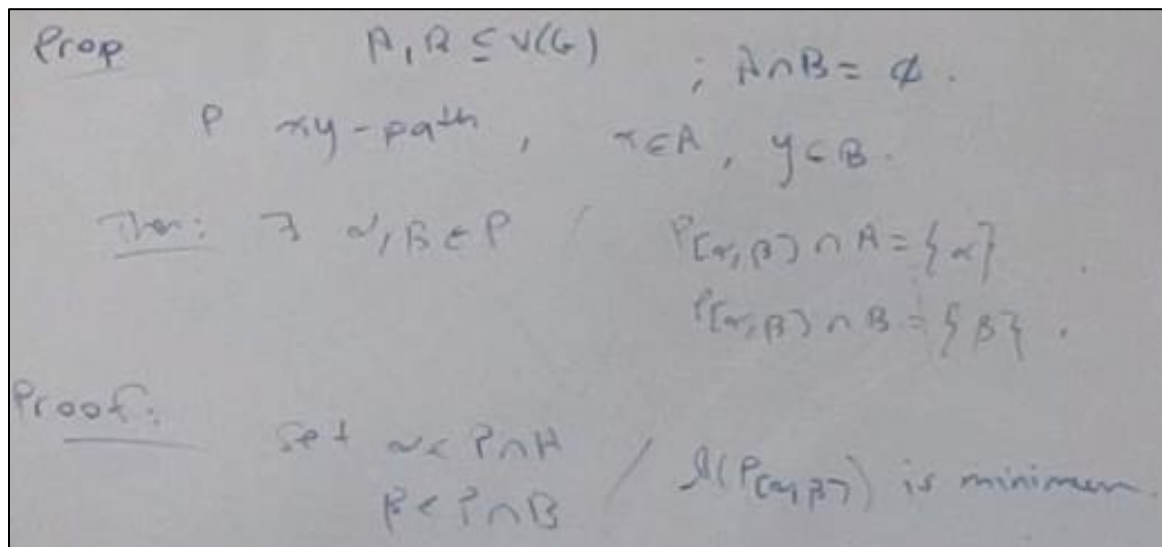 Prop A, B ⊆ V(G) ; A∩B = ∅.
P xy-path, x∈A, y∈B.
Then: ∃ α, β ∈ P / P[α,β] ∩ A = {α} .
P[α,β] ∩ B = {β} .
Proof:
Set α ∈ P∩A / l(P[α,β]) is minimum.
β ∈ P∩B